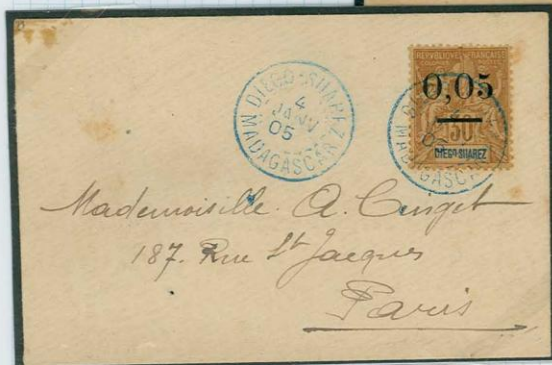 DIEGO-SUAREZ
4
JANV
05
MADAGASCAR
REPUBLIQUE FRANÇAISE
COLONIES POSTES
0,05
30
DIEGO-SUAREZ
MADAGASCAR
Mademoiselle A.
187. Rue St Jacques
Paris